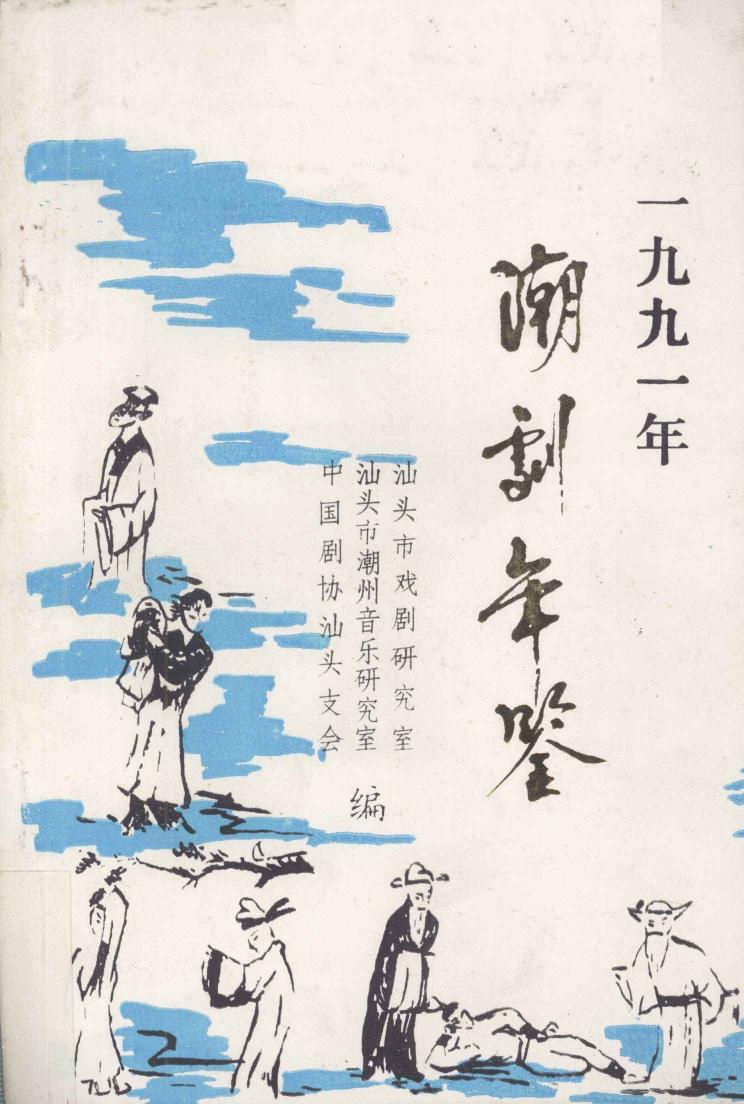 一九九一年
潮剧年鉴
汕头市戏剧研究室
汕头市潮州音乐研究室
中国剧协汕头支会
编